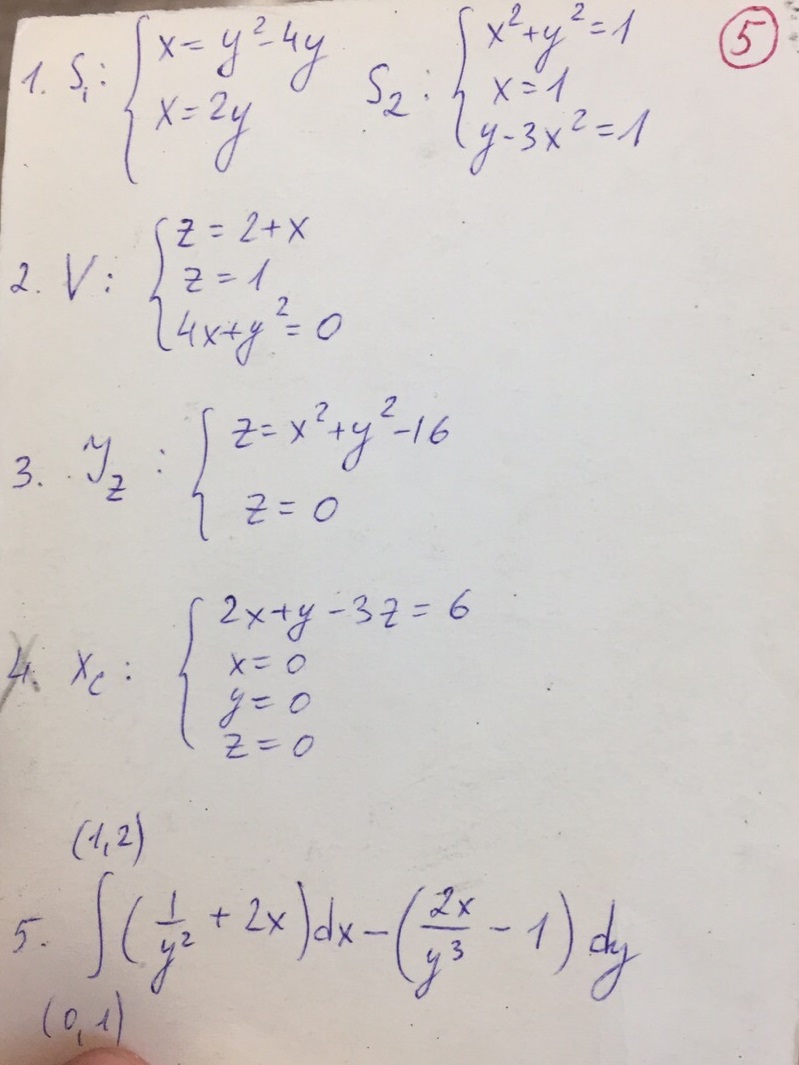 5
1. S₁: { x = y² - 4y
x = 2y
S₂: { x² + y² = 1
x = 1
y - 3x² = 1
2. V: { z = 2 + x
z = 1
4x + y² = 0
3. y_z: { z = x² + y² - 16
z = 0
4. x_c: { 2x + y - 3z = 6
x = 0
y = 0
z = 0
(1, 2)
5. ∫ (1/y² + 2x) dx - (2x/y³ - 1) dy
(0, 1)